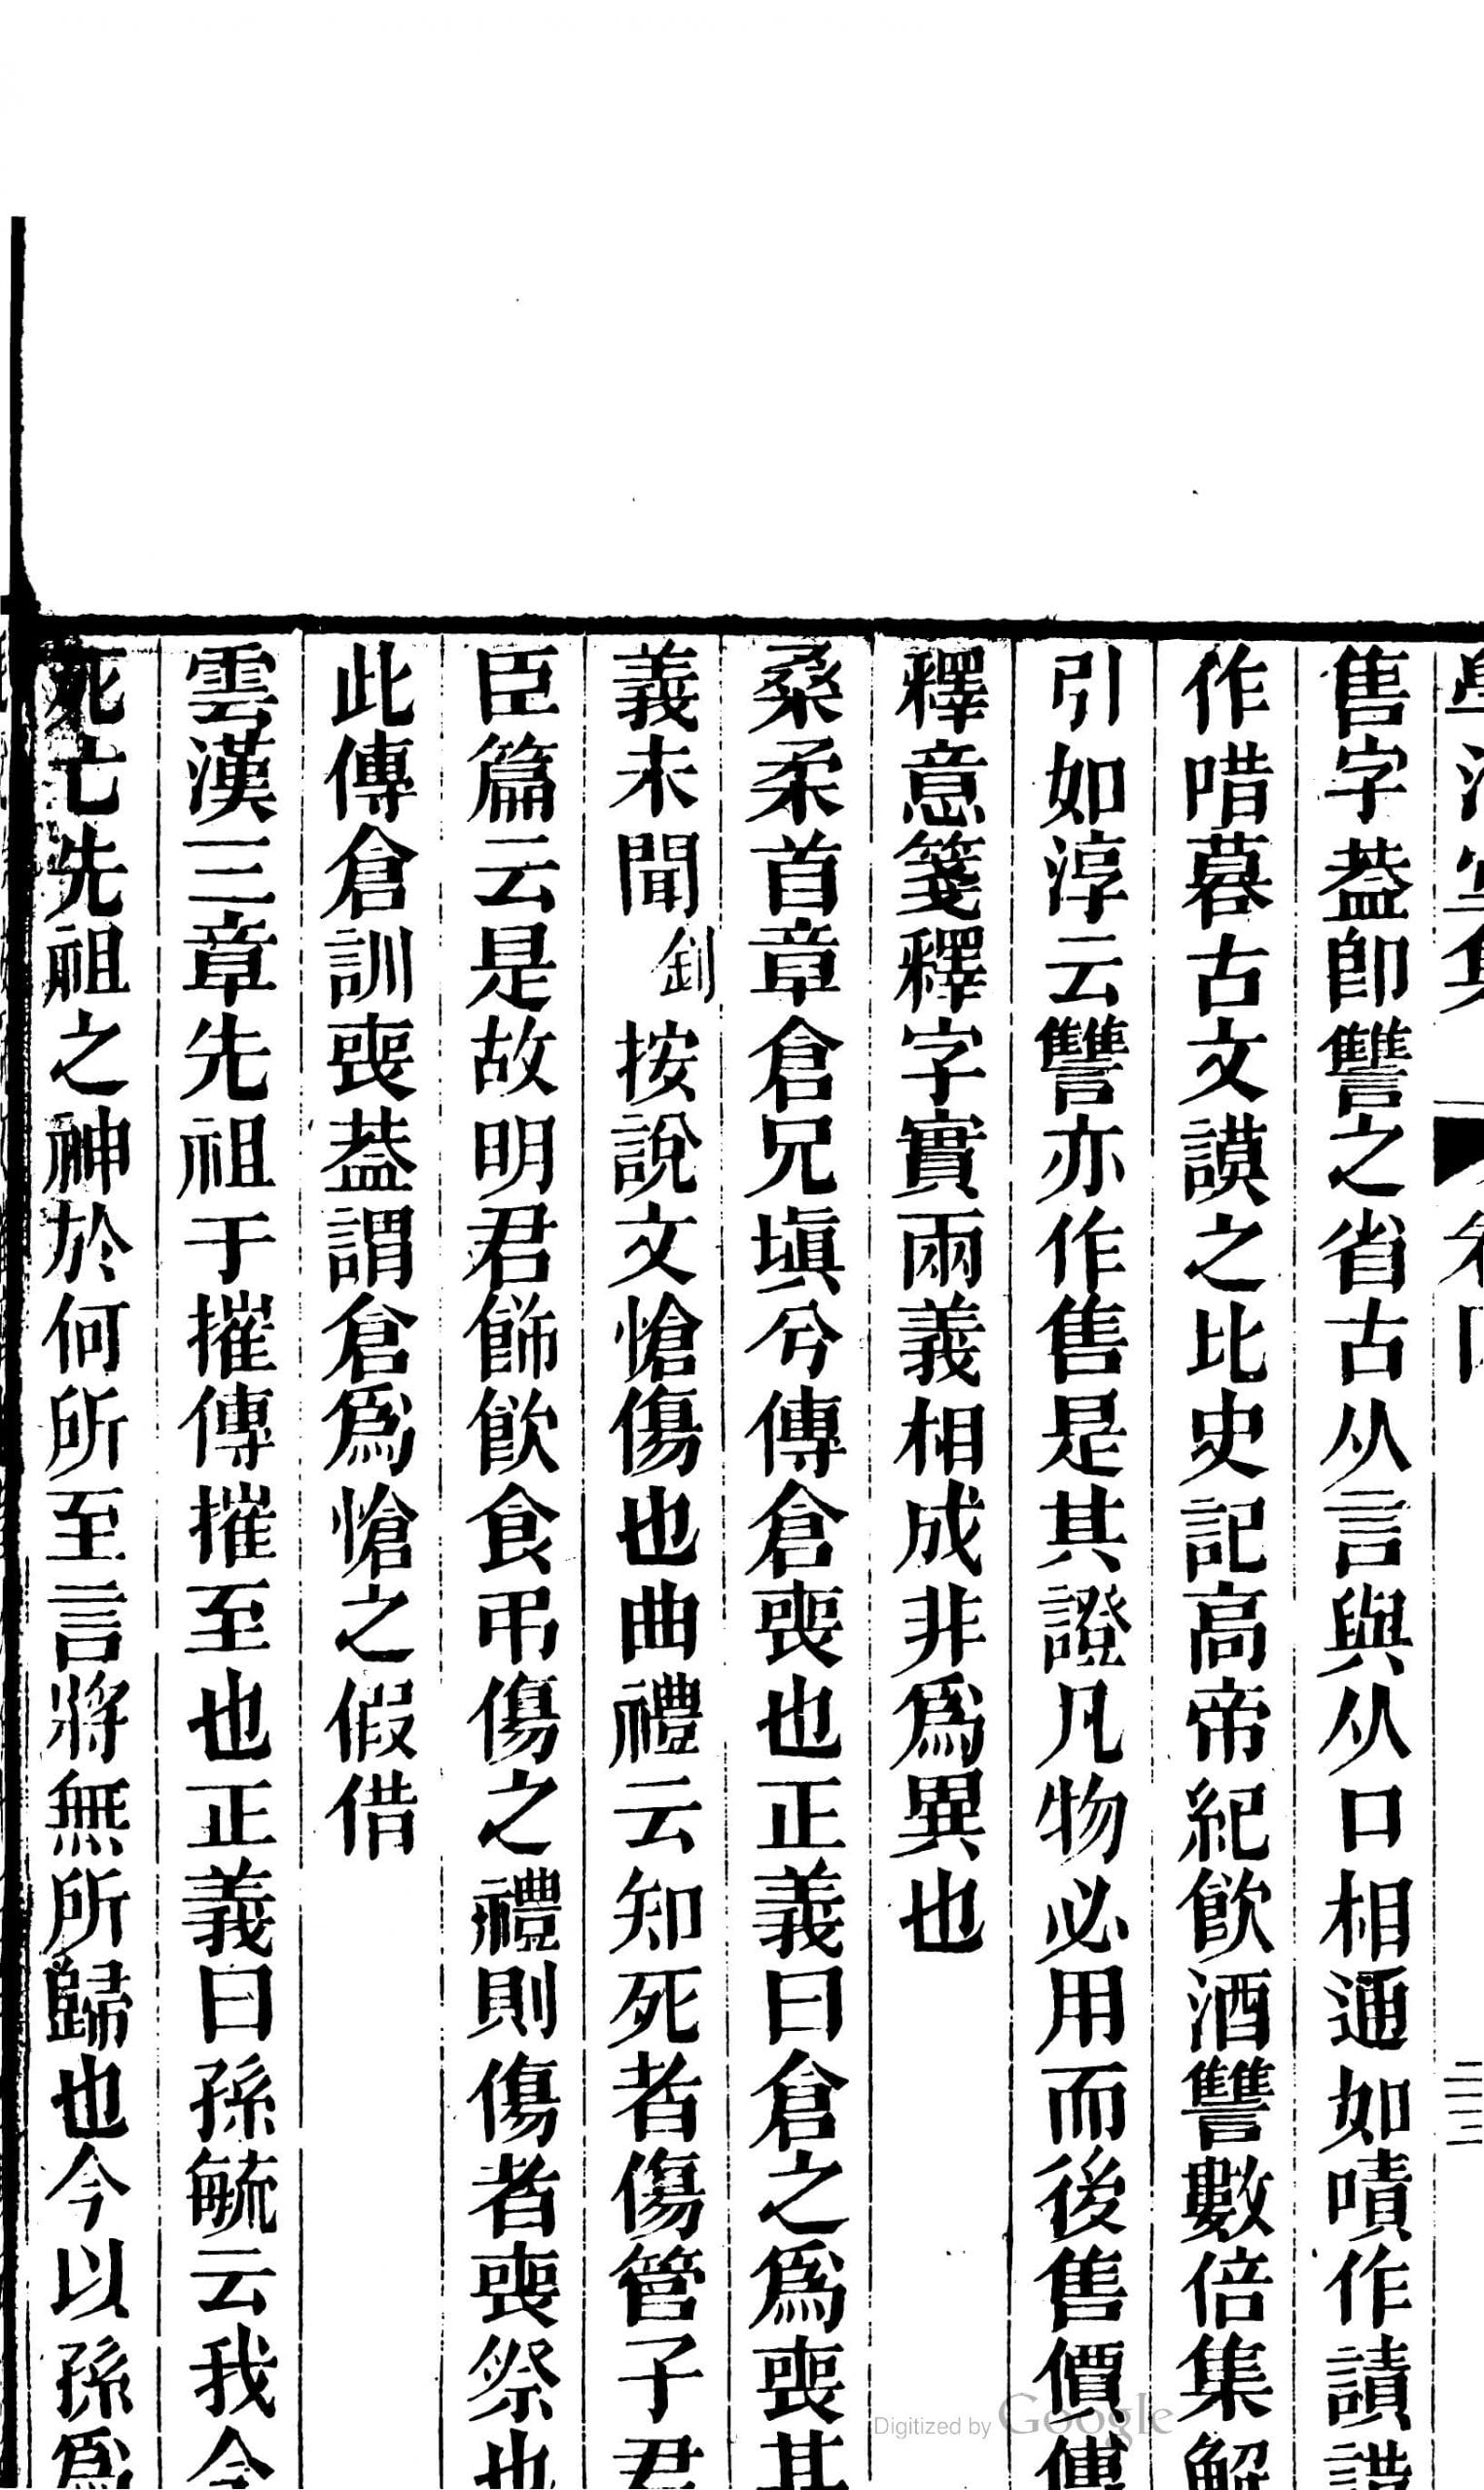 學海堂集 卷四 三
售字葢卽讐之省古从言與从口相通如嘖作讀諎
作唶暮古文謨之比史記高帝紀飲酒讐數倍集解
引如淳云讐亦作售是其證凡物必用而後售價傳
釋意箋釋字實兩義相成非爲異也
桑柔首章倉兄塡兮傳倉喪也正義曰倉之爲喪其
義未聞釗按說文愴傷也曲禮云知死者傷管子君
臣篇云是故明君飾飲食弔傷之禮則傷者喪祭也
此傳倉訓喪葢謂倉爲愴之假借
雲漢三章先祖于摧傳摧至也正義曰孫毓云我今
死亡先祖之神於何所至言將無所歸也今以孫爲
Digitized by Google